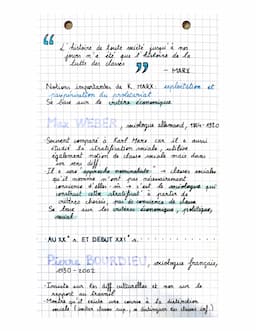 " L'histoire de toute société jusqu'à nos
jours n'a été que l'histoire de la
lutte des classes "
- MARX
Notions importantes de K. MARX: exploitation et
paupérisation du prolétariat.
Se base sur le critère économique.
Max WEBER, sociologue allemand, 1864-1920
Souvent comparé à Karl Marx car il a aussi
étudié la stratification sociale, utilise
également notion de classe sociale mais dans
un sens diff.
Il a une approche nominaliste → classes sociales
qu'il nomme n'ont pas nécessairement
conscience d'elles → c'est le sociologue qui
construit cette stratification à partir de
critères choisis, pas de conscience de classe
Se base sur les critères économique, politique,
social.
AU XXe s. ET DEBUT XXIe s.
Pierre BOURDIEU, sociologue français,
1930-2002
- Insiste sur les diff culturelles et non sur le
rapport au travail
- Montre qu'il existe une course à la distinction
sociale (imiter classes sup., se distinguer des classes inf.)